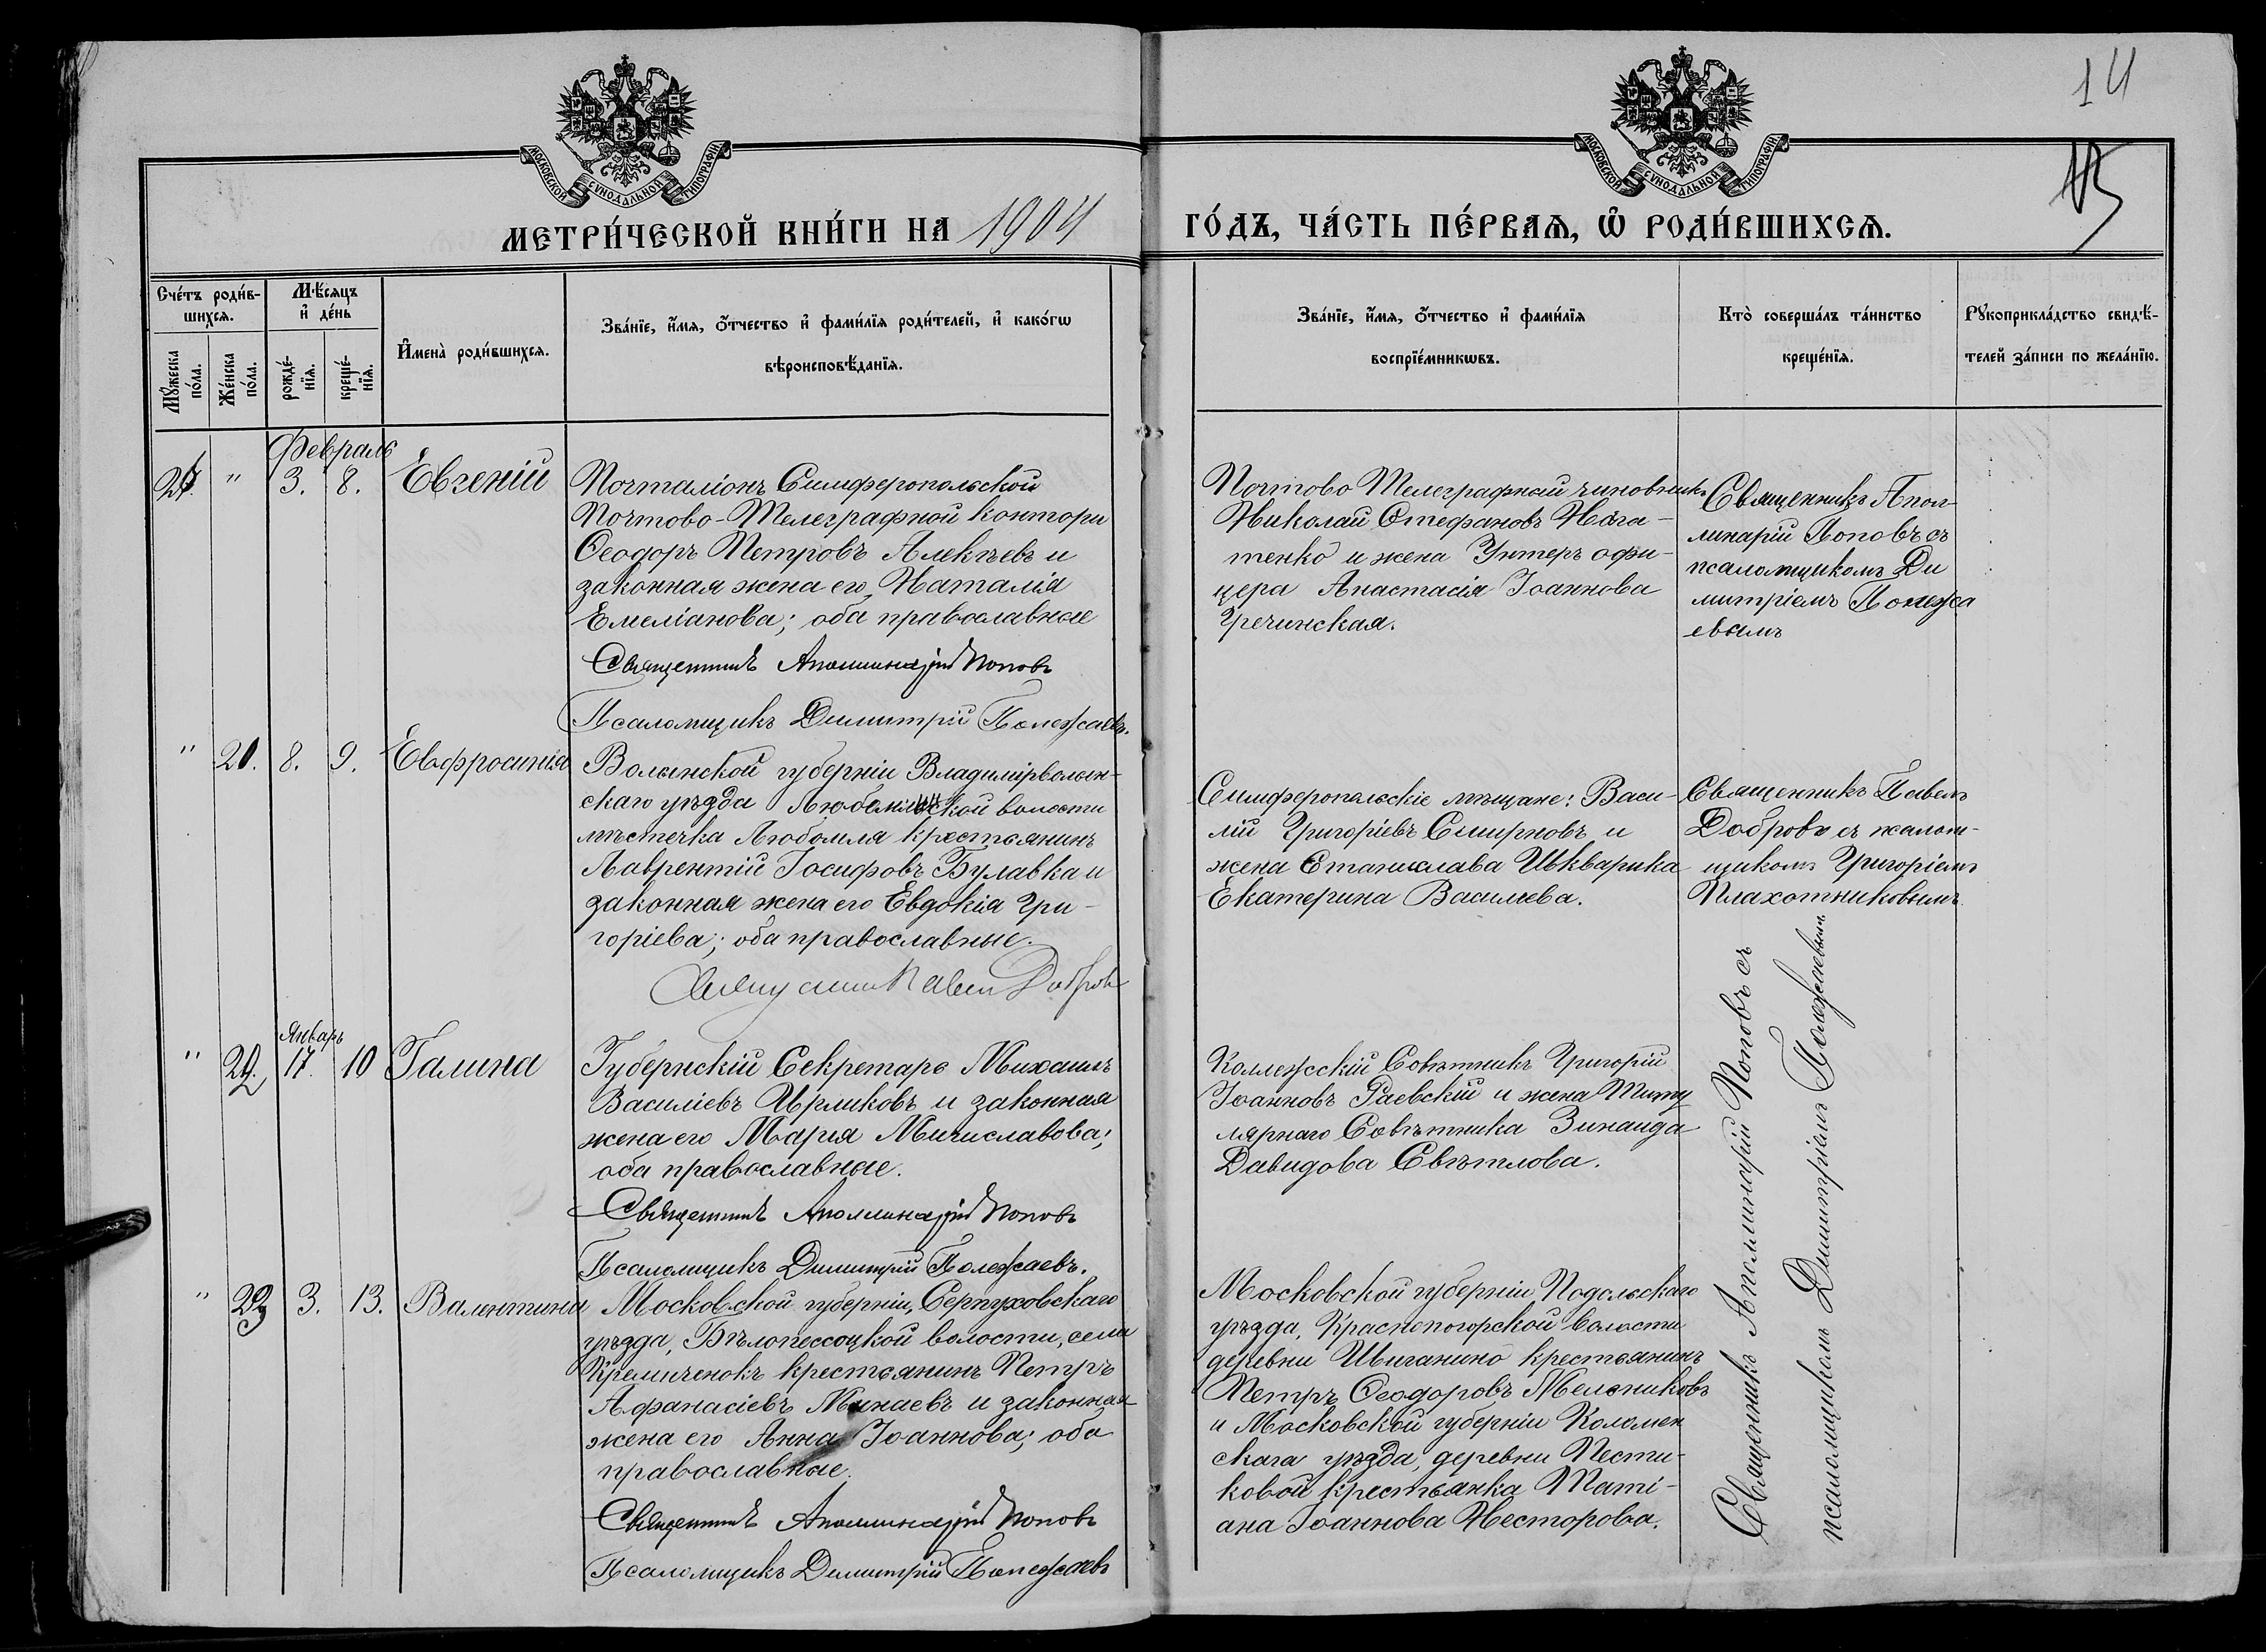 14
15
МОСКОВСКОЙ СѴНОДАЛЬНОЙ ТИПОГРАФІИ
МОСКОВСКОЙ СѴНОДАЛЬНОЙ ТИПОГРАФІИ
МЕТРИ́ЧЕСКОЙ КНИ́ГИ НА 1904
ГО́ДЪ, ЧА́СТЬ ПЕ́РВАѦ, Ѽ РОДИ́ВШИХСѦ.
Сче́тъ роди́в-
шихсѧ.
Мѣ́сѧцъ
и҆ де́нь
Мꙋ́жеска
по́ла.
Же́нска
по́ла.
рожде́-
нїѧ.
креще́-
нїѧ.
И҆мена̀ роди́вшихсѧ.
Зва́нїе, и҆́мѧ, о҆́тчество и҆ фами́лїѧ роди́телей, и҆ како́гѡ
вѣроисповѣ́данїѧ.
Зва́нїе, и҆́мѧ, о҆́тчество и҆ фами́лїѧ
воспрїе́мникѡвъ.
Кто̀ соверша́лъ та́инство
креще́нїѧ.
Рꙋкоприкла́дство свидѣ́-
телей за́писи по жела́нїю.
Февраль
" 3. 8. Евгеній
Почталіонъ Симферопольской
Почтово-Телеграфной Конторы
Ѳеодоръ Петровъ Алекѣевъ и
законная жена его Наталія
Емеліанова; оба православные
Священникъ Аполлинарій Поповъ
Псаломщикъ Димитрій Полежаевъ.
Почтово Телеграфный чиновникъ
Николай Стефановъ Нога-
тенко и жена Унтеръ офи-
цера Анастасія Іоаннова
Гречинская.
Священникъ Апол-
линарій Поповъ съ
псаломщикомъ Ди
митріемъ Полежа
евымъ
" 21. 8. 9. Евфросинія
Волынской губерніи Владимірволын-
скаго уѣзда Любомльской волости
мѣстечка Любомля крестьянинъ
Лаврентій Іосифовъ Булавка и
законная жена его Евдокія Гри-
горіева; оба православные.
Священникъ Павелъ Добровъ
Симферопольскіе мѣщане: Васи-
лій Григоріевъ Смирновъ и
жена Станислава Шкварика
Екатерина Василіева.
Священникъ Павелъ
Добровъ съ псалом-
щикомъ Григоріемъ
Плахотниковымъ
Январь
" 22. 17. 10 Галина
Губернскій Секретарь Михаилъ
Василіевъ Ирликовъ и законная
жена его Марія Мичиславова;
оба православные.
Священникъ Аполлинарій Поповъ
Псаломщикъ Димитрій Полежаевъ.
Коллежскій Совѣтникъ Григорій
Іоанновъ Раевскій и жена Титу
лярнаго Совѣтника Зинаида
Давидова Свѣтлова.
" 23 3. 13. Валентина
Московской губерніи, Серпуховскаго
уѣзда, Бѣлопессоцкой волости, села
Кремиченокъ крестьянинъ Петръ
Афанасіевъ Минаевъ и законная
жена его Анна Іоаннова; оба
православные.
Священникъ Аполлинарій Поповъ
Псаломщикъ Димитрій Полежаевъ
Московской губерніи Подольскаго
уѣзда, Краснопогорской волости
деревни Шиганино крестьянинъ
Петръ Ѳеодоровъ Мельниковъ
и Московской губерніи Коломен
скаго уѣзда, деревни Пести-
ковой крестьянка Таті-
ана Іоаннова Несторова.
Священникъ Аполлинарій Поповъ съ
псаломщикомъ Димитріемъ Полежаевымъ